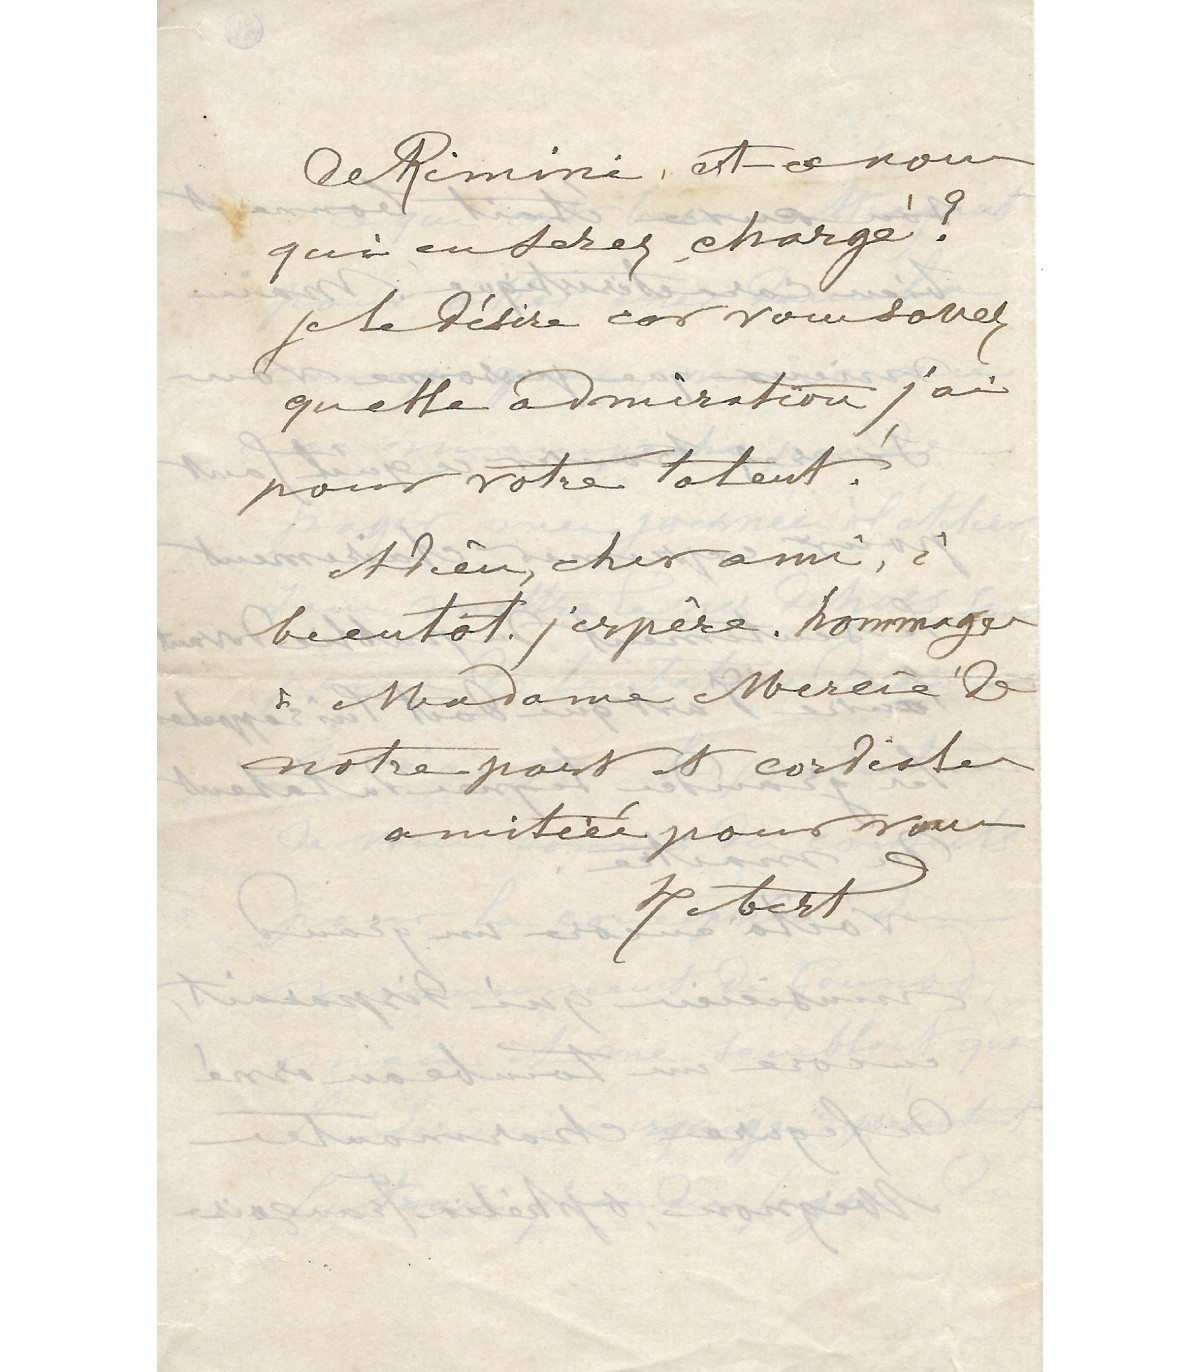 de Rimini, est-ce vous
qui en serez chargé ?
je le désire car vous savez
quelle admiration j'ai
pour votre talent !
Adieu, cher ami, à
bientôt j'espère. hommages
à Madame Mercié de
notre part et cordiales
amitiés pour vous
Hebert